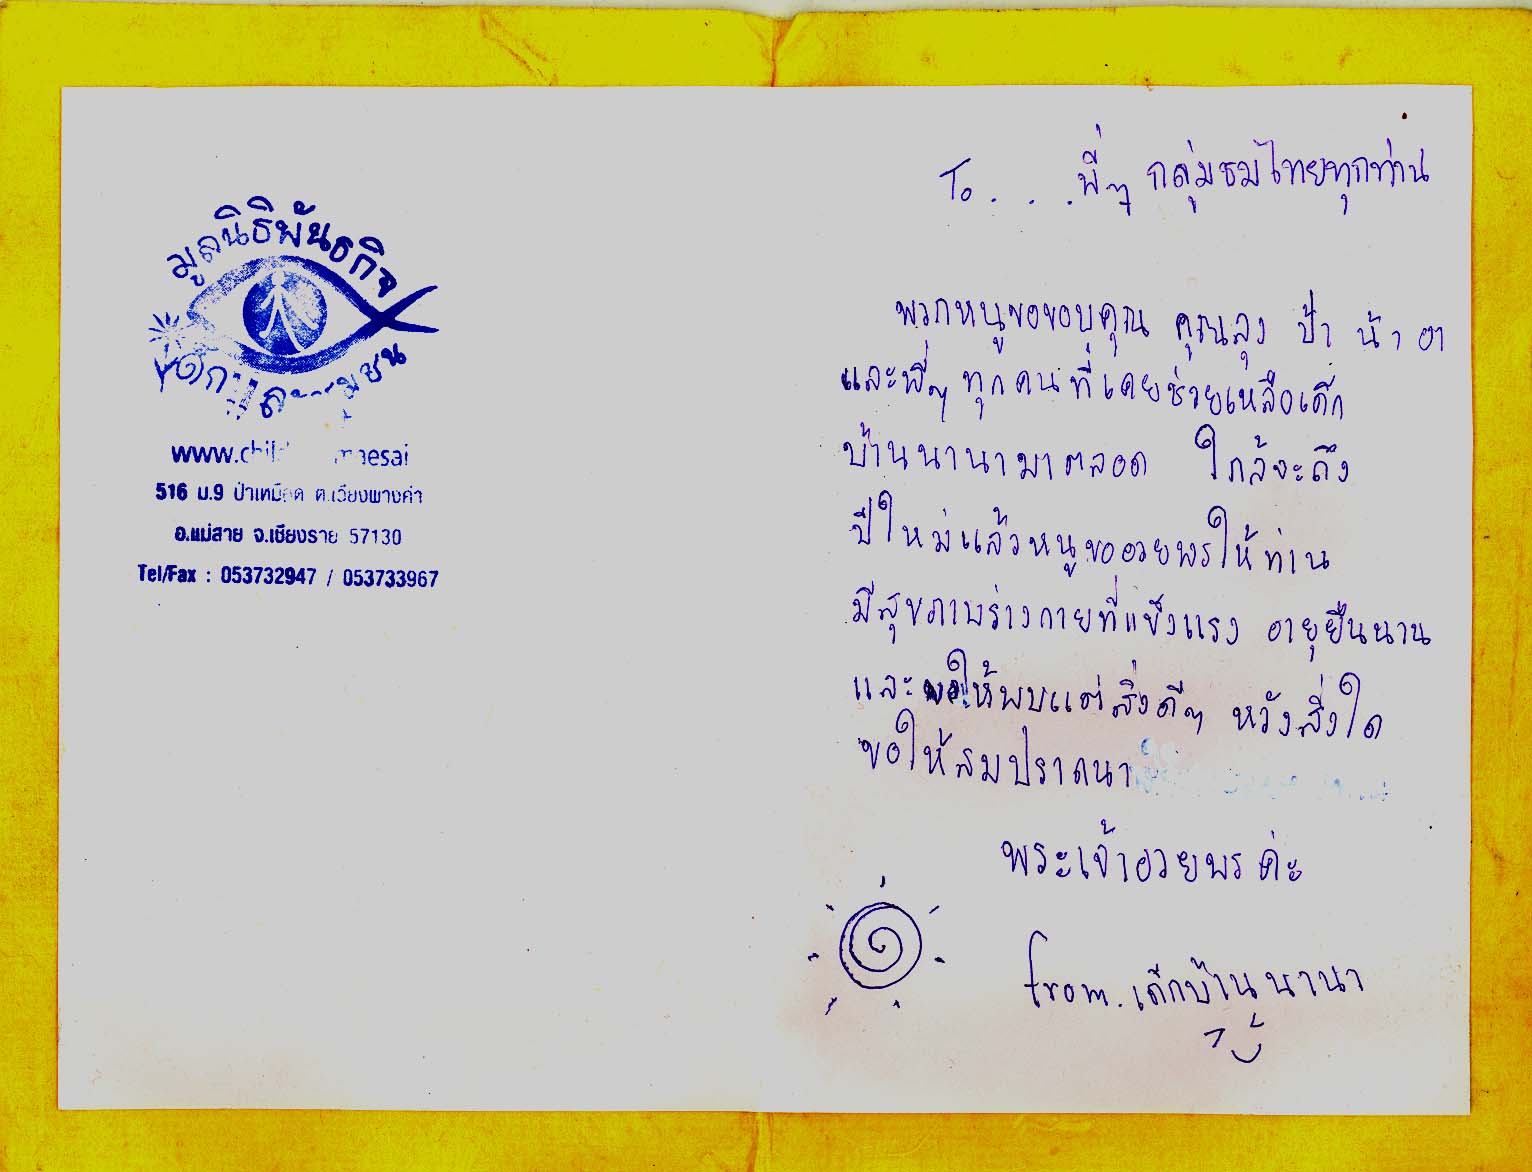 มูลนิธิพันธกิจ
เด็กและชุมชน
www.
516 ม.9 ป่าเหมือด ต.เวียงพางคำ
อ.แม่สาย จ.เชียงราย 57130
Tel/Fax : 053732947 / 053733967
To . . . . พี่ๆ กลุ่มธมไทยทุกท่าน
พวกหนูขอขอบคุณ คุณลุง ป้า น้า อา
และพี่ๆ ทุกคนที่เคยช่วยเหลือเด็ก
บ้านนานามาตลอด ใกล้จะถึง
ปีใหม่แล้วหนูขออวยพรให้ท่าน
มีสุขภาพร่างกายที่แข็งแรง อายุยืนนาน
และขอให้พบแต่สิ่งดีๆ หวังสิ่งใด
ขอให้สมปราถนา
พระเจ้าอวยพรค่ะ
from. เด็กบ้านนานา